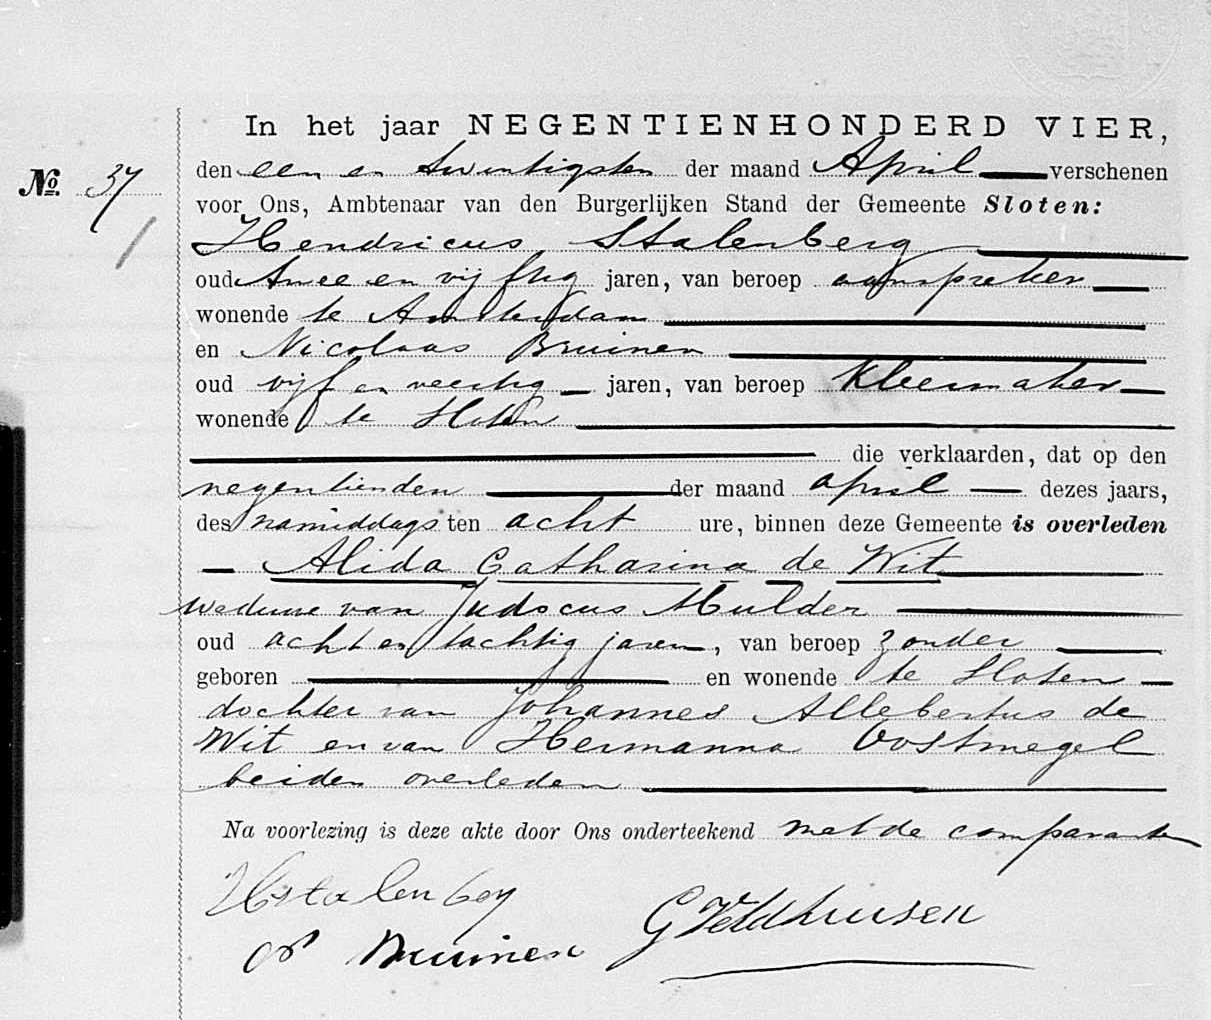 In het jaar NEGENTIENHONDERD VIER,
den een en twintigsten der maand April verschenen
No. 37
voor Ons, Ambtenaar van den Burgerlijken Stand der Gemeente Sloten:
Hendricus Stalenberg
oud twee en vijftig jaren, van beroep aanspreker
wonende te Amsterdam
en Nicolaas Bruinen
oud vijf en veertig jaren, van beroep kleermaker
wonende te Sloten
die verklaarden, dat op den
negentienden der maand april dezes jaars,
des namiddags ten acht ure, binnen deze Gemeente is overleden
Alida Catharina de Wit
weduwe van Judocus Mulder
oud acht en tachtig jaren, van beroep zonder
geboren en wonende te Sloten
dochter van Johannes Allebertus de
Wit en van Hermanna Oostmegel
beiden overleden
Na voorlezing is deze akte door Ons onderteekend met de comparanten
HStalenberg
GVeldhuisen
N Bruinen